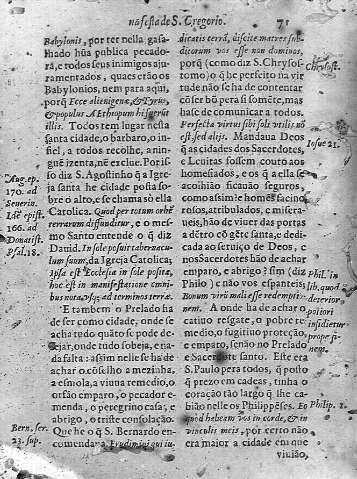 na festa de S. Gregorio. 71
Babylonis, por ter nella gasa-
lhado hũa publica pecado-
ra, e todos seus inimigos aju-
ramentados, quaes erão os
Babylonios, nem para aqui,
porq̃ Ecce alienigenæ, & Tyrus,
& populus Æthiopum hi fuerūt
illic. Todos tem lugar nesta
santa cidade, o barbaro, o in-
fiel, a todos recolhe, a nin-
guē izenta, nē exclue. Por is-
so diz S. Agostinho q̃ a Igre
ja santa he cidade posta so-
bre o alto, e se chama só ella
Catolica. Quod per totum orbē
terrarum diffundatur, e o mes-
mo Santo entende o q̃ diz
Dauid. In sole posuit tabernacu-
lum suum, da Igreja Catolica;
Ipsa est Ecclesia in sole posita,
hoc est in manifestatione omni-
bus nota, usq; ad terminos terræ.
E tambem o Prelado ha
de ser como cidade, onde se
acha tudo quāto se pode de-
sejar, onde tudo sobeja, e na-
da falta: assim nelle se ha de
achar o cōselho a mezinha,
a esmola, a viuua remedio, o
orfão emparo, o pecador e-
menda, o peregrino casa, e
abrigo, o triste consolação.
Que he o q̃ S. Bernardo en-
comenda: Erudimini qui iu-
Aug. ep.
170. ad
Seuerin.
Lē epist.
166. ad
Donatist.
Psal. 18.
Bern. ser.
23. sup.
dicatis terrā, discite matres sub-
ditorum vos esse non dominos,
porq̃ (como diz S. Chryso-
stomo) o q̃ he perfeito na vir
tude não se ha de contentar
cō ser bō pera si somēte, mas
hase de comunicar a todos.
Perfecta virtus sibi soli vtilis nō
est, sed alijs. Mandaua Deos
q̃ as cidades dos Sacerdotes,
e Leuitas fossem couto aos
homesiados, e os q̃ a ella se
acolhião ficauão seguros,
como assim? e homēs facino
rosos, atribulados, e misera-
ueis, hão de viuer das portas
a dētro cō gēte santa, e dedi-
cada ao seruiço de Deos, e
nos Sacerdotes hão de achar
emparo, e abrigo? sim (diz
Philo) e não vos espanteis;
Bonum virũ mali esse redempti-
nem. A onde ha de achar o
catiuo resgate, o pobre re-
medio, o fugitiuo proteção,
e emparo, senão no Prelado
e Sacerdote santo. Este era
S. Paulo pera todos, q̃ posto
q̃ prezo em cadeas, tinha o
coração tão largo q̃ lhe ca-
bião nelle os Philippēses. Eo
quod habeam vos in corde, & in
vinculis meis, por certo não
era maior a cidade em que
viuião,
Chrysost.
Iosue 21.
Phil. in
lib. quod
deterior
potiori
insidietur
prope fi-
nem.
Philip. 1.